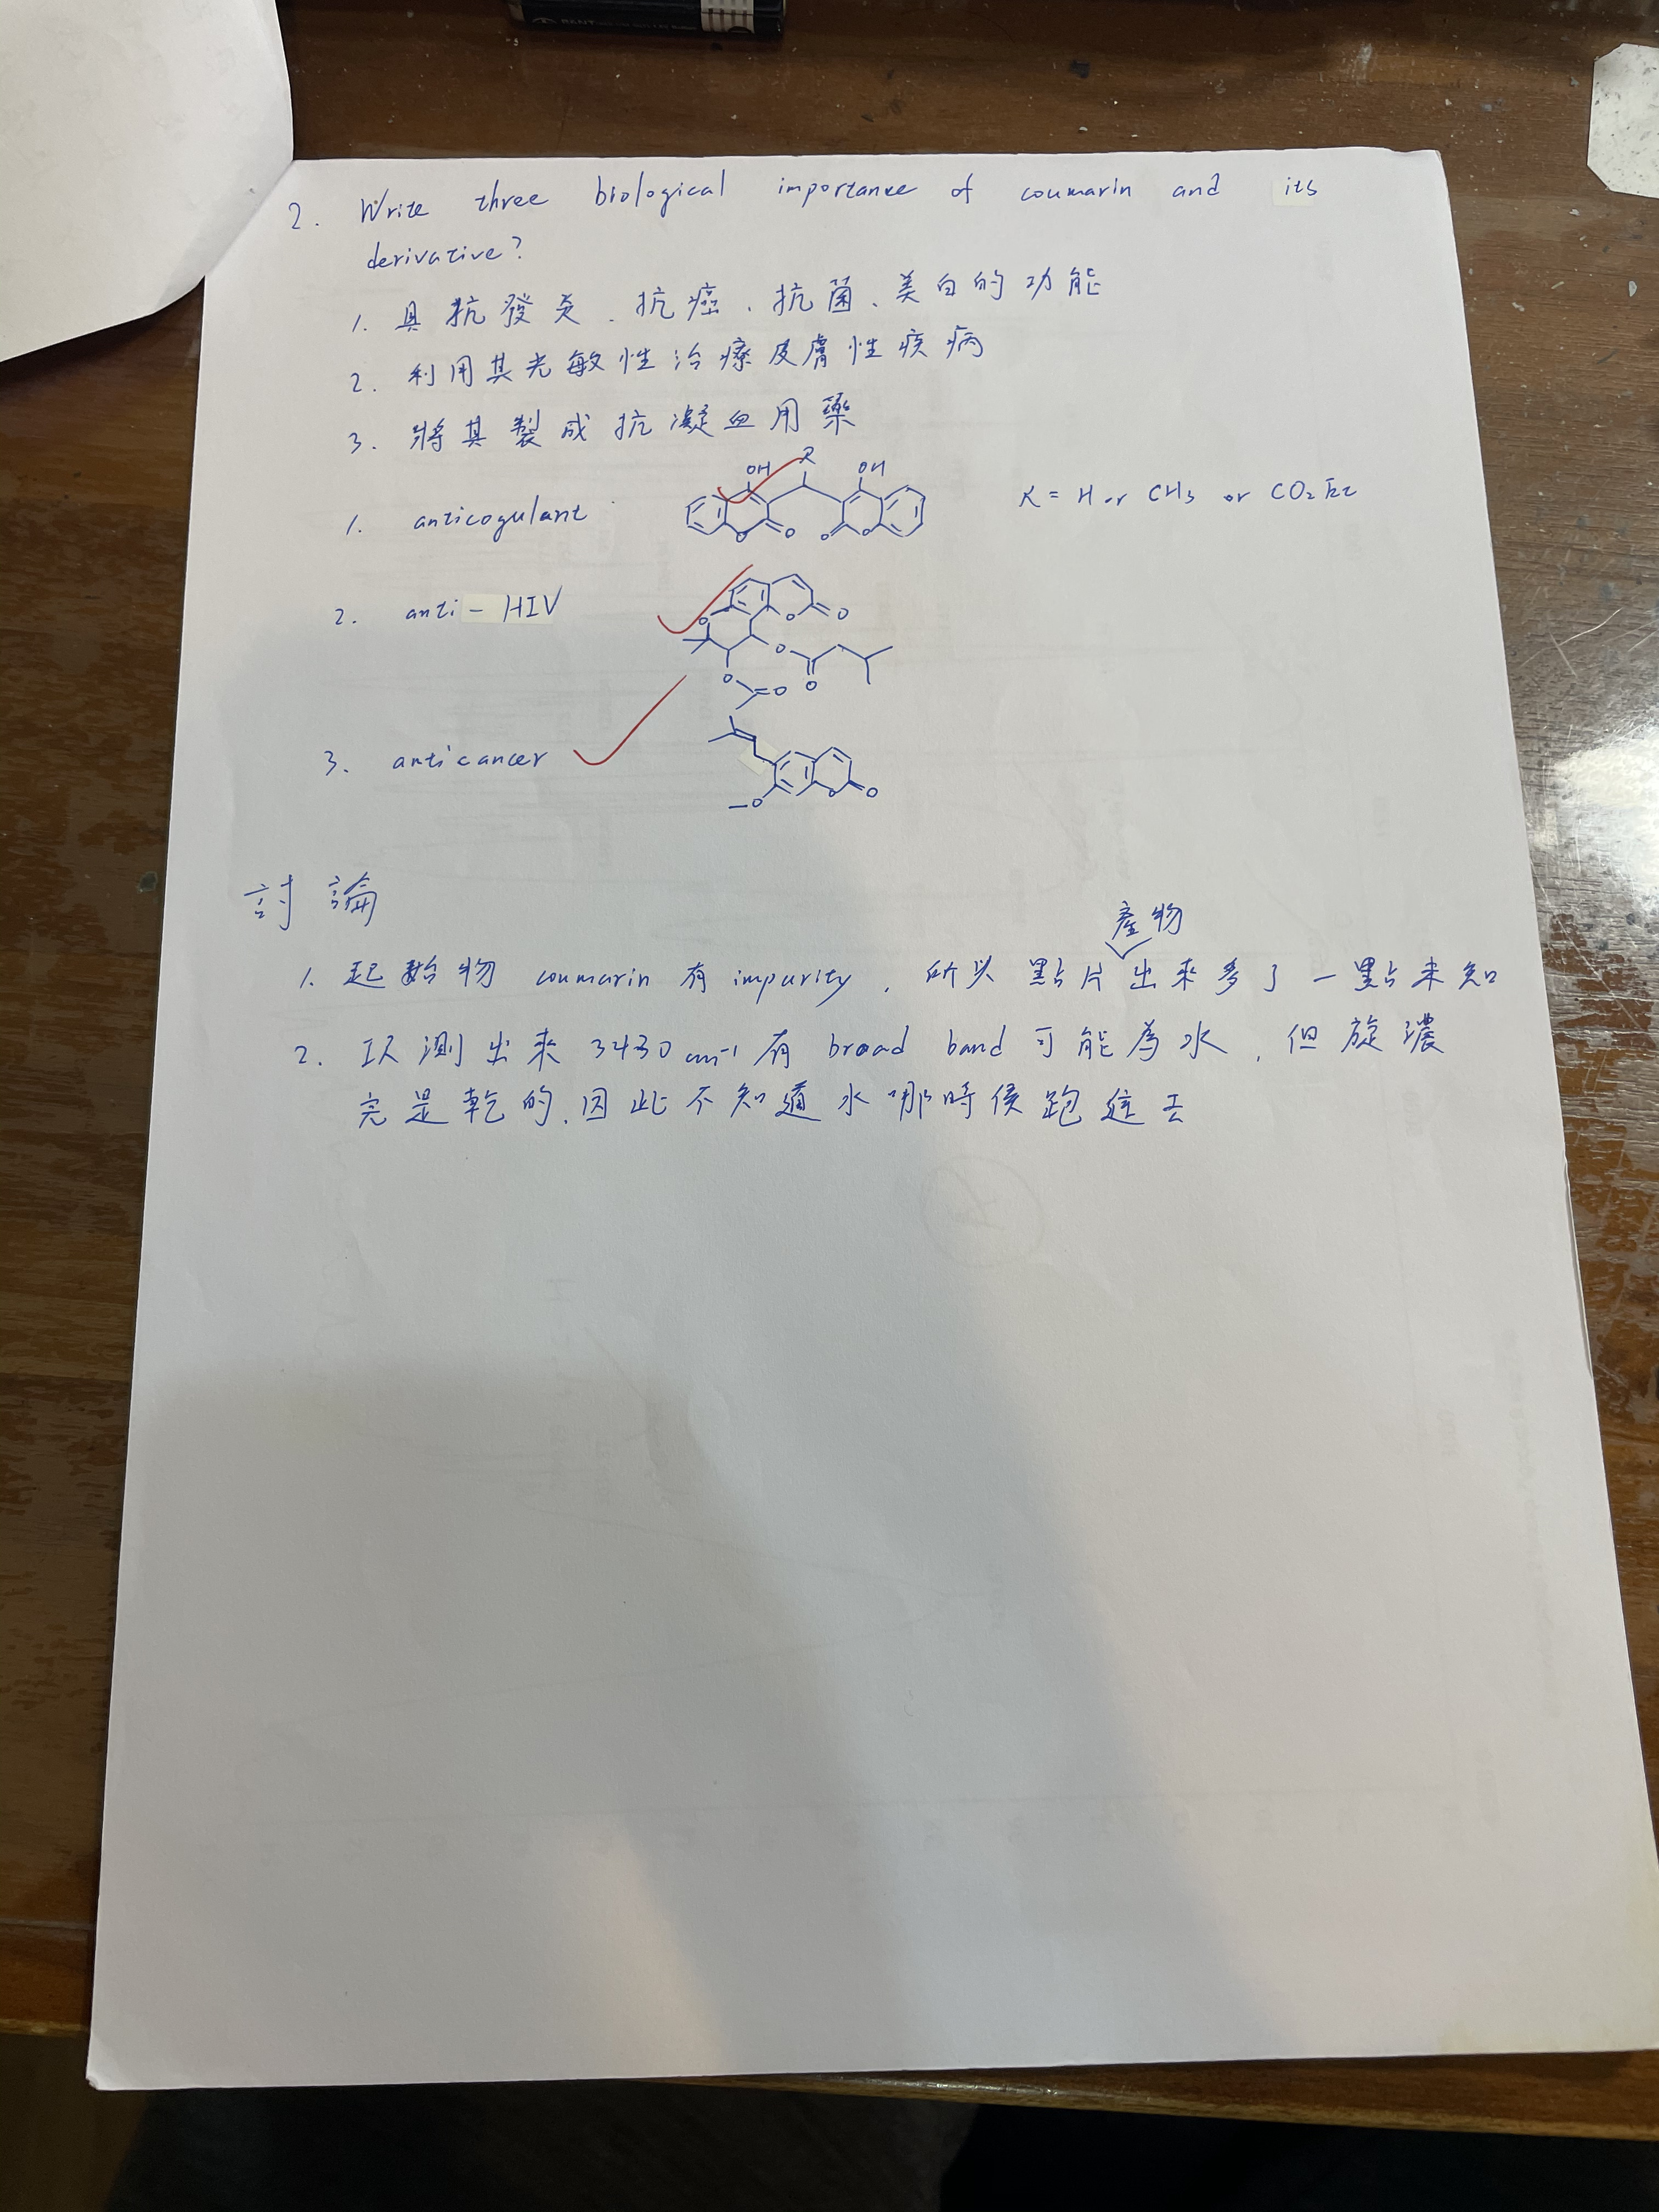 2. Write three biological importance of coumarin and its
derivative?
1. 具抗發炎、抗癌、抗菌、美白的功能
2. 利用其光敏性治療皮膚性疾病
3. 將其製成抗凝血用藥
1. anticogulant
OH R OH
O O O O
R = H or CH3 or CO2Et
2. anti-HIV
O O O
O O
O O
3. anticancer
O O O
討論
產物
1. 起始物 coumarin 有 impurity, 所以點片出來多了一點未知
2. IR 測出來 3430 cm-1 有 broad band 可能為水, 但旋濃
完是乾的, 因此不知道水哪時候跑進去